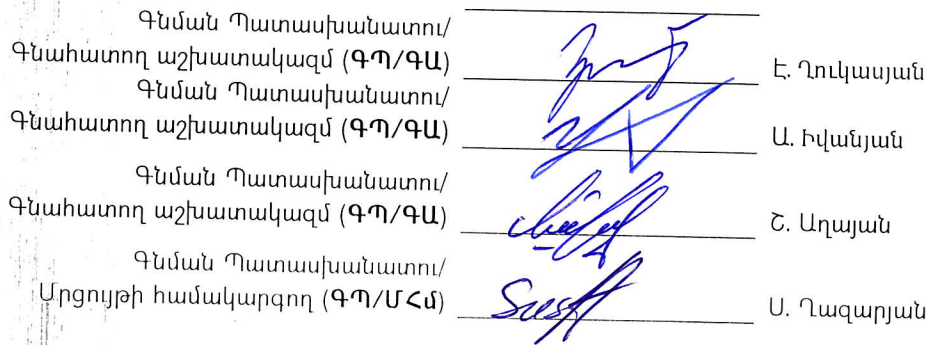 Գնման Պատասխանատու/
Գնահատող աշխատակազմ (ԳՊ/ԳԱ) Է. Ղուկասյան
Գնման Պատասխանատու/
Գնահատող աշխատակազմ (ԳՊ/ԳԱ) Ա. Իվանյան
Գնման Պատասխանատու/
Գնահատող աշխատակազմ (ԳՊ/ԳԱ) Շ. Աղայան
Գնման Պատասխանատու/
Մրցույթի համակարգող (ԳՊ/ՄՀմ) Ս. Ղազարյան